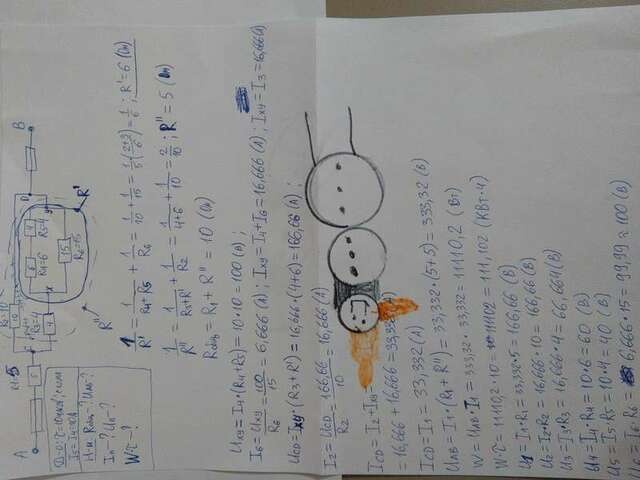 A
B
R'
R''
x
y
D
R4=6
R5=4
R6=15
R3=4
I5=I4=10A
Rобщ-? UAB-?
In-? Un-?
W·τ-?
1/R' = 1/(R4+R5) + 1/R6 = 1/10 + 1/15 = 1/5(2+3/6) = 1/6; R'=6 (Ом)
1/R'' = 1/(R3+R') + 1/R2 = 1/(4+6) + 1/10 = 2/10; R''=5 (Ом)
Rобщ=R1+R''=10 (Ом)
Uxy=I4·(R4+R5)=10·10=100(В);
I6=Uxy/R6=100/15=6,666(А); Ixy=I4+I6=16,666(А); Ixy=I3=16,666(А)
UCD=Ixy·(R3+R')=16,66·(4+6)=166,66(В);
I2=UCD/R2=166,66/10=16,666(А)
ICD=I2+Ixy
=16,666+16,666=33,332(А)
ICD=I1=33,332(А)
UAB=I1·(R1+R'')=33,332·(5+5)=333,32(В)
W=UAB·I1=333,32·33,332=11110,2 (Вт)
W·τ=11110,2·10=111,102 (КВт·ч)
U1=I1·R1=33,332·5=166,66(В)
U2=I2·R2=16,666·10=166,66(В)
U3=I3·R3=16,666·4=66,664(В)
U4=I4·R4=10·6=60 (В)
U5=I5·R5=10·4=40 (В)
U6=I6·R6=6,666·15=99,99≈100(В)